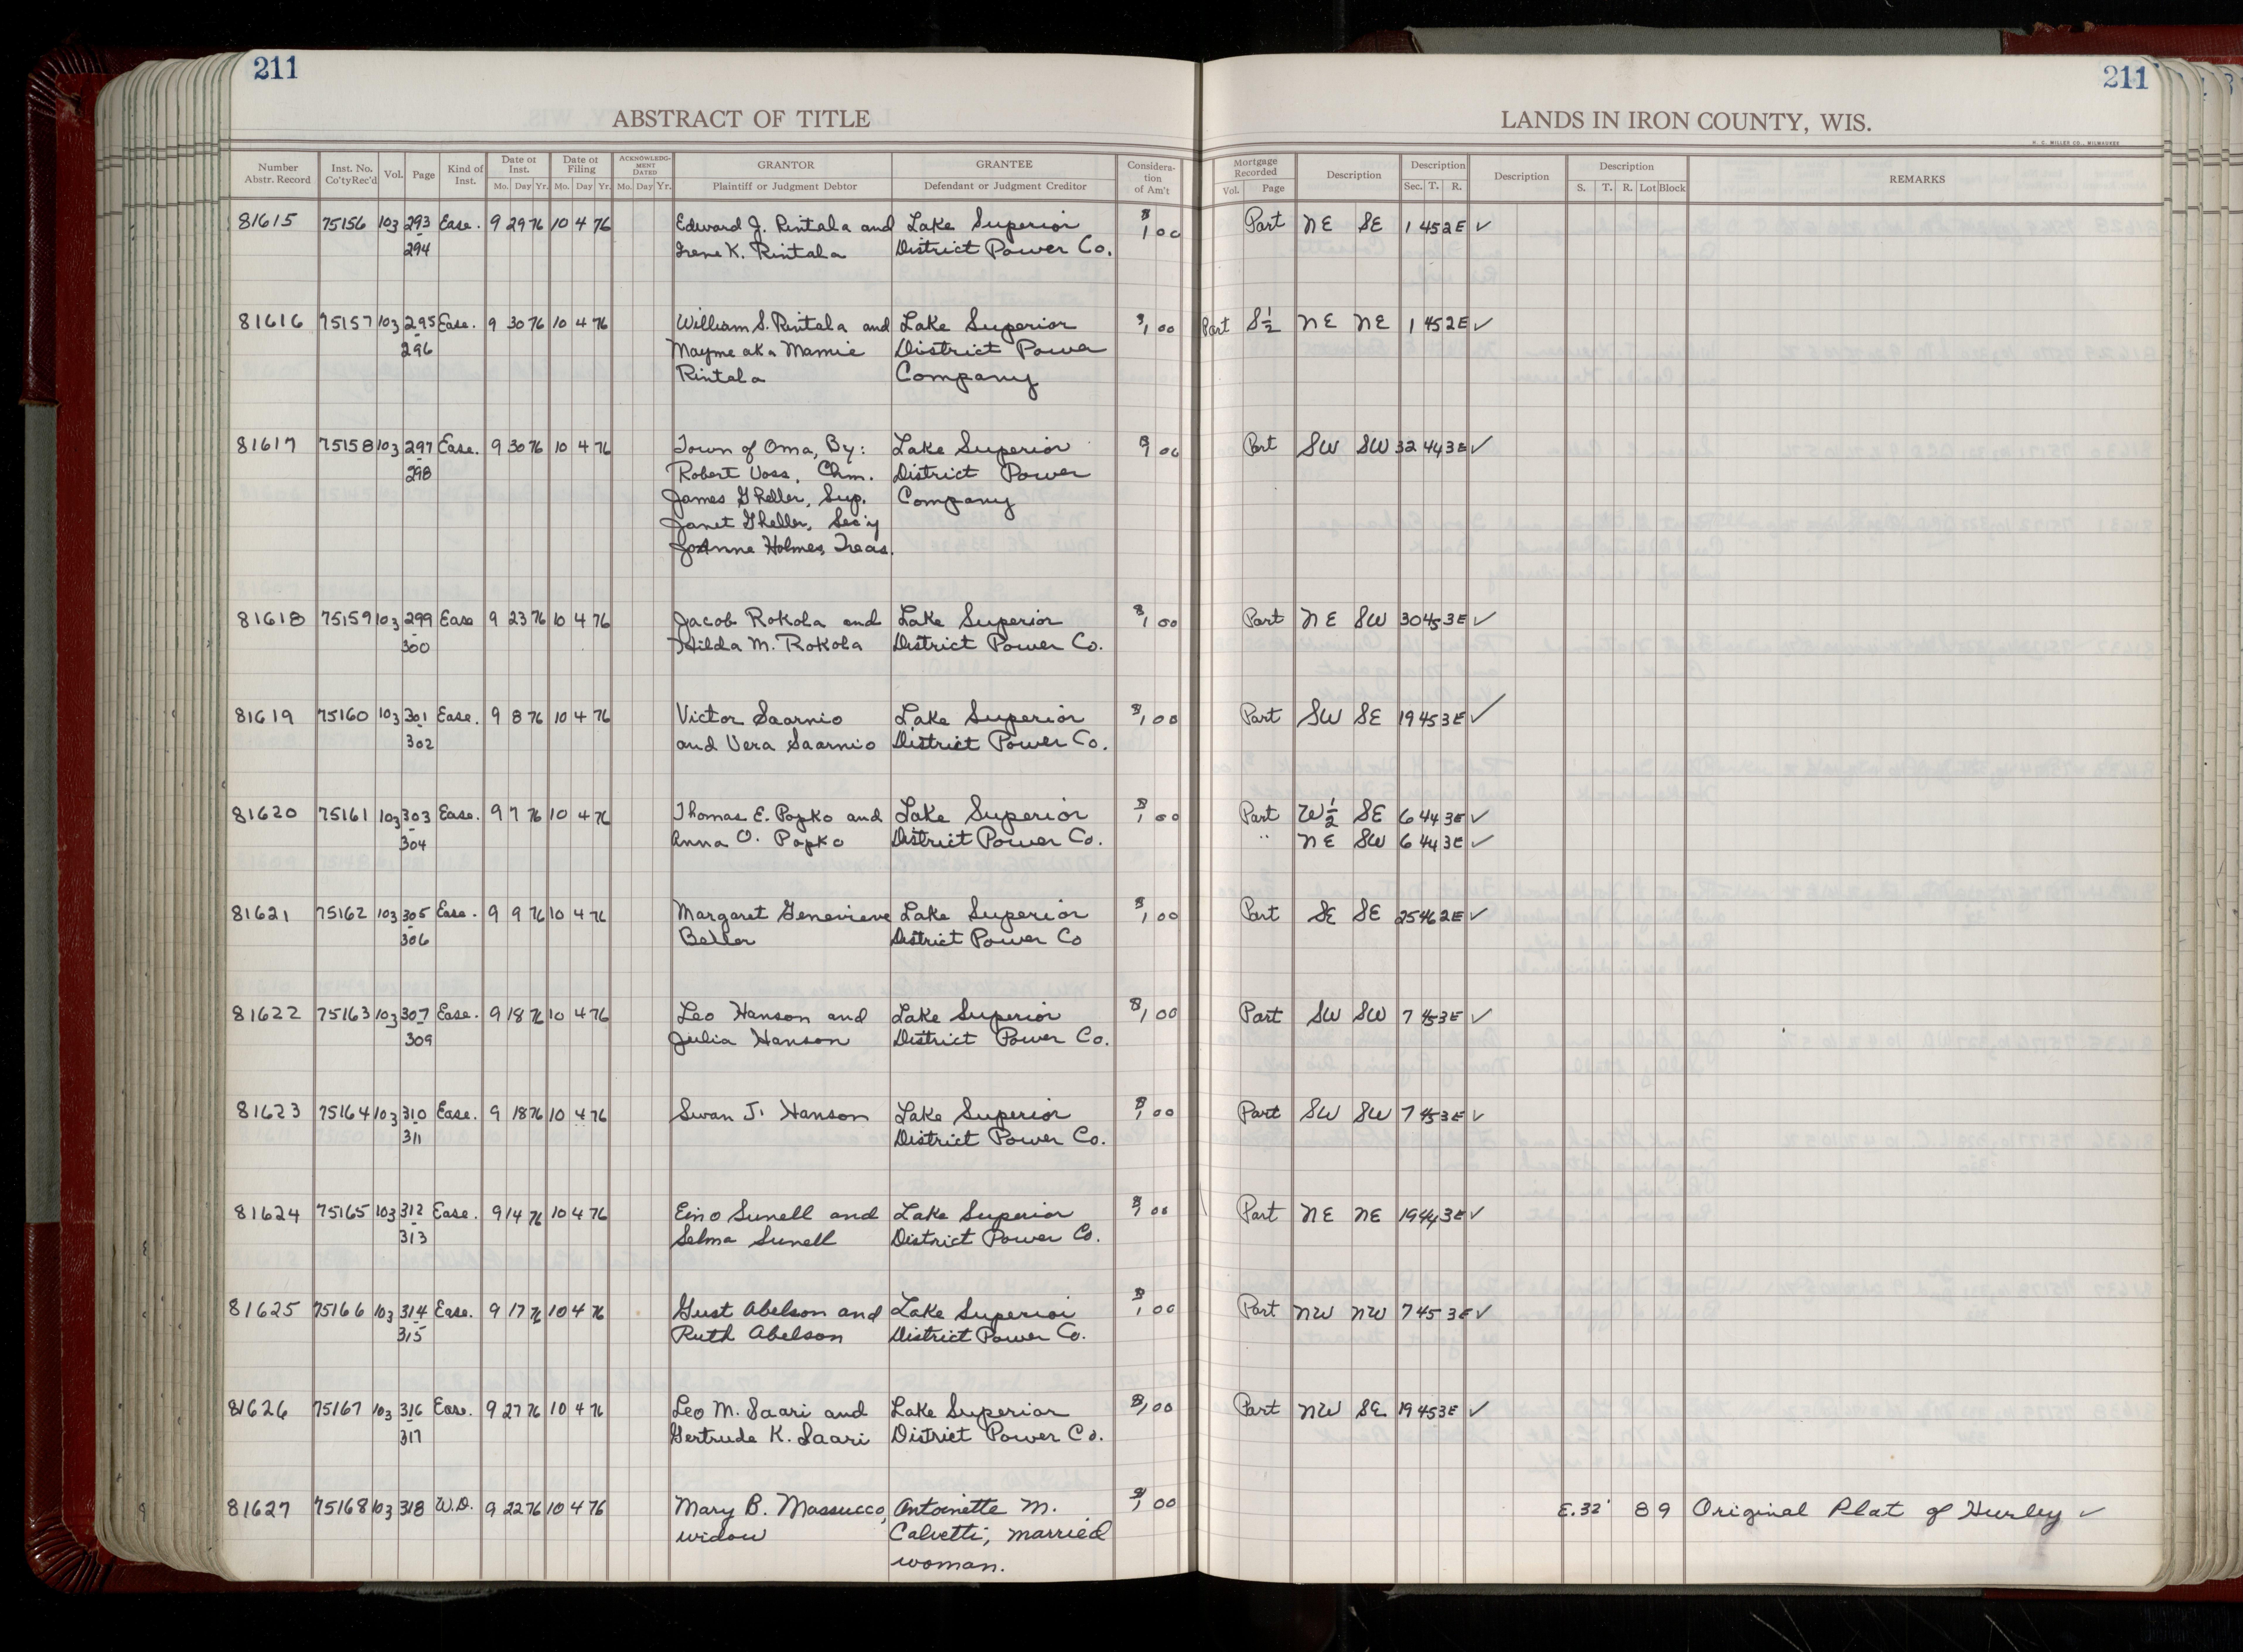 211
211
ABSTRACT OF TITLE
LANDS IN IRON COUNTY, WIS.
H. C. MILLER CO., MILWAUKEE
Number Abstr. Record | Inst. No. Co'ty Rec'd | Vol. | Page | Kind of Inst. | Date of Inst. Mo. Day Yr. | Date of Filing Mo. Day Yr. | ACKNOWLEDGMENT DATED Mo. Day Yr. | GRANTOR Plaintiff or Judgment Debtor | GRANTEE Defendant or Judgment Creditor | Consideration of Am't | Mortgage Recorded Vol. Page | Description | Description Sec. T. R. | Description | Description S. T. R. Lot Block | REMARKS
81615 75156 103 293 Ease. 9 29 76 10 4 76 Edward J. Rintala and Lake Superior $1 00 Part NE SE 1 45 2E ✓
- 294 Irene K. Rintala District Power Co.
81616 75157 103 295 Ease. 9 30 76 10 4 76 William S. Rintala and Lake Superior $1 00 Part S½ NE NE 1 45 2E ✓
- 296 Mayme aka Mamie District Power
Rintala Company
81617 75158 103 297 Ease. 9 30 76 10 4 76 Town of Oma, By: Lake Superior $1 00 Part SW SW 32 44 3E ✓
- 298 Robert Voss, Chm. District Power
James Gheller, Sup. Company
Janet Gheller, Sec'y
JoAnne Holmes, Treas.
81618 75159 103 299 Ease 9 23 76 10 4 76 Jacob Rokola and Lake Superior $1 00 Part NE SW 30 45 3E ✓
- 300 Hilda M. Rokola District Power Co.
81619 75160 103 301 Ease. 9 8 76 10 4 76 Victor Saarnio Lake Superior $1 00 Part SW SE 19 45 3E ✓
- 302 and Vera Saarnio District Power Co.
81620 75161 103 303 Ease. 9 7 76 10 4 76 Thomas E. Popko and Lake Superior $1 00 Part W½ SE 6 44 3E ✓
- 304 Anna O. Popko District Power Co. " NE SW 6 44 3E ✓
81621 75162 103 305 Ease. 9 9 76 10 4 76 Margaret Genevieve Lake Superior $1 00 Part SE SE 25 46 2E ✓
- 306 Beller District Power Co
81622 75163 103 307 Ease. 9 18 76 10 4 76 Leo Hanson and Lake Superior $1 00 Part SW SW 7 45 3E ✓
- 309 Julia Hanson District Power Co.
81623 75164 103 310 Ease. 9 18 76 10 4 76 Swan J. Hanson Lake Superior $1 00 Part SW SW 7 45 3E ✓
- 311 District Power Co.
81624 75165 103 312 Ease. 9 14 76 10 4 76 Eino Sunell and Lake Superior $1 00 Part NE NE 19 44 3E ✓
- 313 Selma Sunell District Power Co.
81625 75166 103 314 Ease. 9 17 76 10 4 76 Gust Abelson and Lake Superior $1 00 Part NW NW 7 45 3E ✓
- 315 Ruth Abelson District Power Co.
81626 75167 103 316 Ease. 9 27 76 10 4 76 Leo M. Saari and Lake Superior $1 00 Part NW SE 19 45 3E ✓
- 317 Gertrude K. Saari District Power Co.
81627 75168 103 318 W.D. 9 22 76 10 4 76 Mary B. Massucco, Antoinette M. $1 00 E. 32' 8 9 Original Plat of Hurley ✓
widow Calvetti, married
woman.